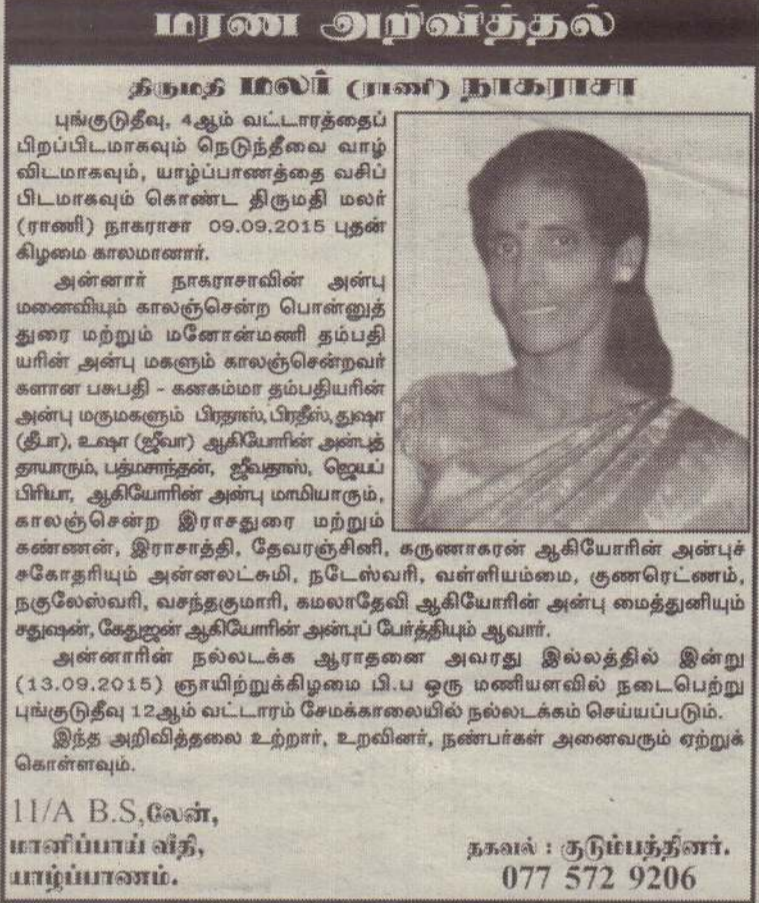 மரண அறிவித்தல்
திருமதி மலர் (ராணி) நாகராசா
புங்குடுதீவு, 4ஆம் வட்டாரத்தைப்
பிறப்பிடமாகவும் நெடுந்தீவை வாழ்
விடமாகவும், யாழ்ப்பாணத்தை வசிப்
பிடமாகவும் கொண்ட திருமதி மலர்
(ராணி) நாகராசா 09.09.2015 புதன்
கிழமை காலமானார்.
அன்னார் நாகராசாவின் அன்பு
மனைவியும் காலஞ்சென்ற பொன்னுத்
துரை மற்றும் மனோன்மணி தம்பதி
யரின் அன்பு மகளும் காலஞ்சென்றவர்
களான பசுபதி – கனகம்மா தம்பதியரின்
அன்பு மருமகளும் பிரதாஸ், பிரதீஸ், துஷா
(தீபா), உஷா (ஜீவா) ஆகியோரின் அன்புத்
தாயாரும், பத்மசாந்தன், ஜீவதாஸ், ஜெயப்
பிரியா, ஆகியோரின் அன்பு மாமியாரும்,
காலஞ்சென்ற இராசதுரை மற்றும்
கண்ணன், இராசாத்தி, தேவரஞ்சினி, கருணாகரன் ஆகியோரின் அன்புச்
சகோதரியும் அன்னலட்சுமி, நடேஸ்வரி, வள்ளியம்மை, குணரெட்ணம்,
நகுலேஸ்வரி, வசந்தகுமாரி, கமலாதேவி ஆகியோரின் அன்பு மைத்துனியும்
சதுஷன், கேதுஜன் ஆகியோரின் அன்புப் பேர்த்தியும் ஆவார்.
அன்னாரின் நல்லடக்க ஆராதனை அவரது இல்லத்தில் இன்று
(13.09.2015) ஞாயிற்றுக்கிழமை பி.ப ஒரு மணியளவில் நடைபெற்று
புங்குடுதீவு 12ஆம் வட்டாரம் சேமக்காலையில் நல்லடக்கம் செய்யப்படும்.
இந்த அறிவித்தலை உற்றார், உறவினர், நண்பர்கள் அனைவரும் ஏற்றுக்
கொள்ளவும்.
11/A B.S,லேன்,
மானிப்பாய் வீதி,
யாழ்ப்பாணம்.
தகவல் : குடும்பத்தினர்.
077 572 9206